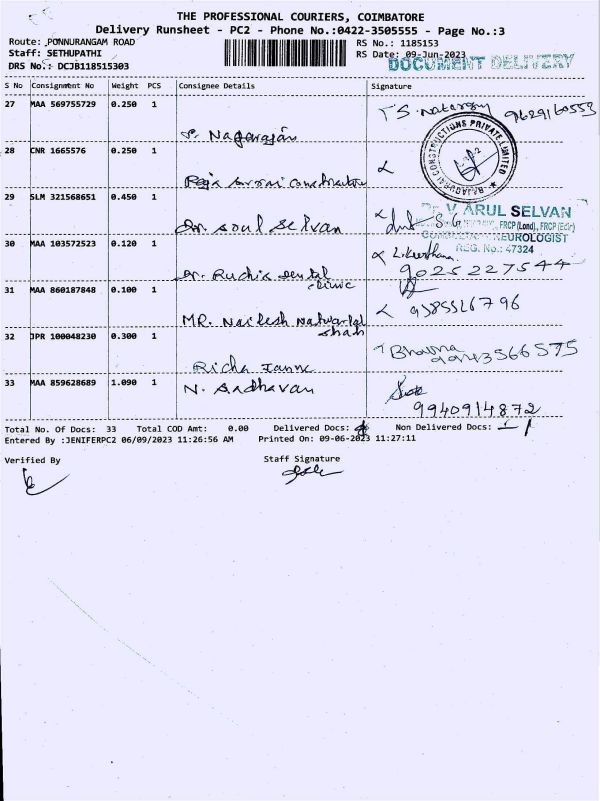 THE PROFESSIONAL COURIERS, COIMBATORE
Delivery Runsheet - PC2 - Phone No.:0422-3505555 - Page No.:3
Route: PONNURANGAM ROAD RS No.: 1185153
Staff: SETHUPATHI RS Date: 09-Jun-2023
DRS No.: DCJB118515303 DOCUMENT DELIVERY
S No Consignment No Weight PCS Consignee Details Signature
27 MAA 569755729 0.250 1
P. Nagarajan T S. Natarajan 9629160553
28 CNR 1665576 0.250 1
RAJADURAI CONSTRUCTIONS PRIVATE LIMITED
29 SLM 321568651 0.450 1
Dr. Aoul Selvan Dr. V ARUL SELVAN
FRCP (Lond)., FRCP (Edin)
NEUROLOGIST
REG. No.: 47324
30 MAA 103572523 0.120 1
Dr. Ruchis dental clinic 9025227544
31 MAA 860187848 0.100 1
MR. Nailesh Natwarlal shah
32 JPR 100048230 0.300 1
Richa Bhavna
33 MAA 859628689 1.090 1
N. Aadhavan
9940914872
Total No. Of Docs: 33 Total COD Amt: 0.00 Delivered Docs: Non Delivered Docs:
Entered By :JENIFERPC2 06/09/2023 11:26:56 AM Printed On: 09-06-2023 11:27:11
Verified By Staff Signature